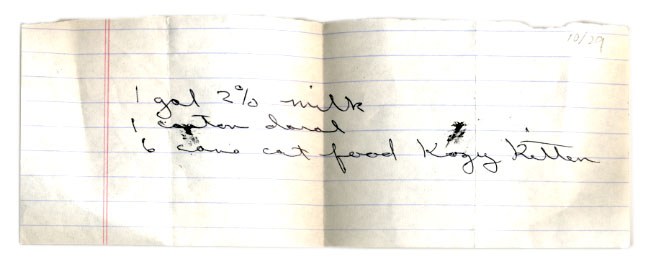 10/29
1 gal 2% milk
1 carton doral
6 cans cat food Kozy Kitten